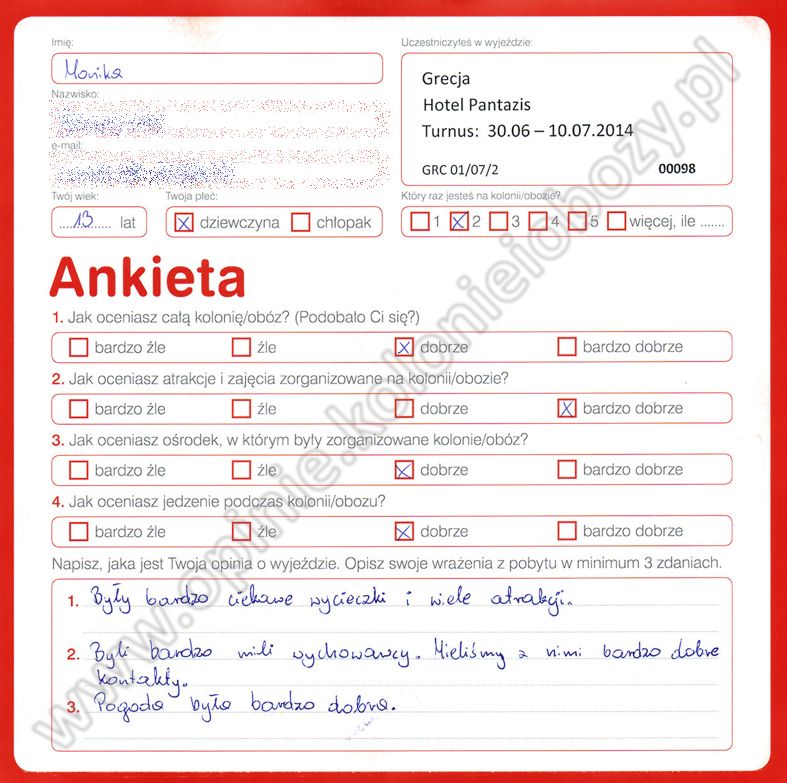 Imię:
Monika
Uczestniczyłeś w wyjeździe:
Grecja
Hotel Pantazis
Turnus: 30.06 – 10.07.2014
GRC 01/07/2 00098
Nazwisko:
e-mail:
Twój wiek:
13 lat
Twoja płeć:
dziewczyna chłopak
Który raz jesteś na kolonii/obozie?
1 2 3 4 5 więcej, ile .......
Ankieta
1. Jak oceniasz całą kolonię/obóz? (Podobało Ci się?)
bardzo źle źle dobrze bardzo dobrze
2. Jak oceniasz atrakcje i zajęcia zorganizowane na kolonii/obozie?
bardzo źle źle dobrze bardzo dobrze
3. Jak oceniasz ośrodek, w którym były zorganizowane kolonie/obóz?
bardzo źle źle dobrze bardzo dobrze
4. Jak oceniasz jedzenie podczas kolonii/obozu?
bardzo źle źle dobrze bardzo dobrze
Napisz, jaka jest Twoja opinia o wyjeździe. Opisz swoje wrażenia z pobytu w minimum 3 zdaniach.
1. Były bardzo ciekawe wycieczki i wiele atrakcji.
2. Byli bardzo mili wychowawcy. Mieliśmy z nimi bardzo dobre
kontakty.
3. Pogoda była bardzo dobra.
www.opinie.kolonieiobozy.pl